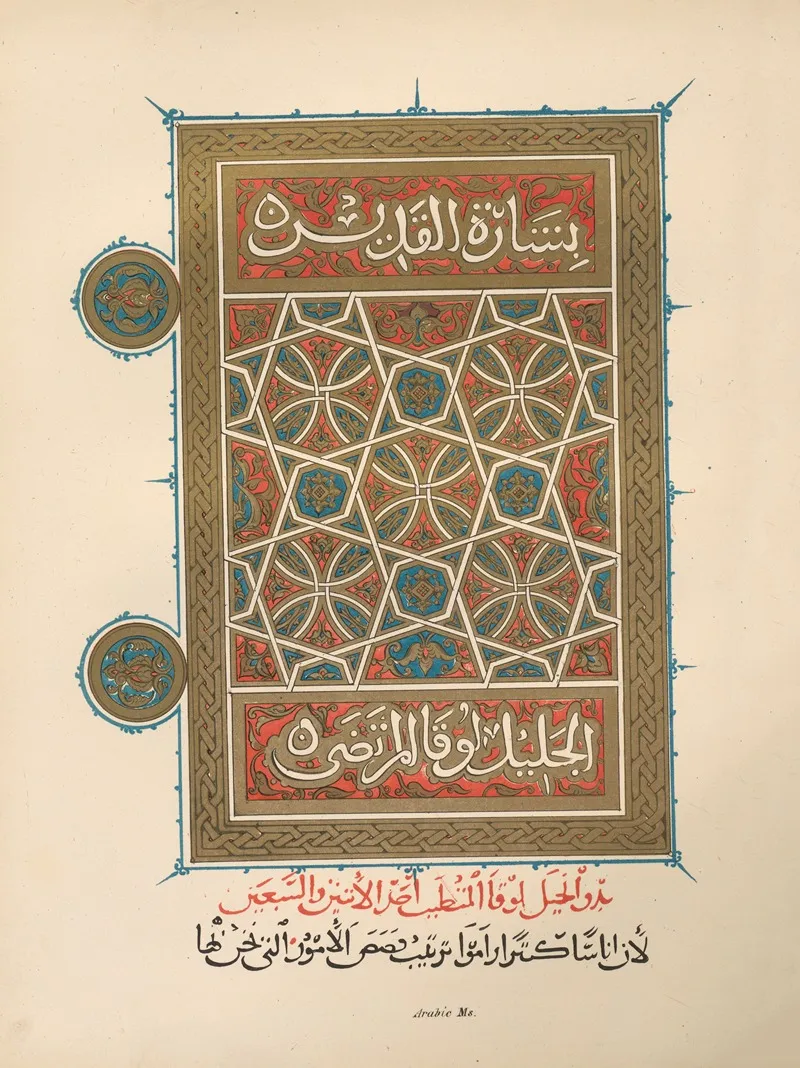 بِشَارَة القَدِيس
الجَلِيْل لُوقَا المُرتَضَى
بدو انجيل لوقا المتطبب أحد الأثنين والسَّبعين
لأن اناسًا كثيرا رامُوا ترتيب قصَص الأمُور التي نحن بها
Arabic Ms.